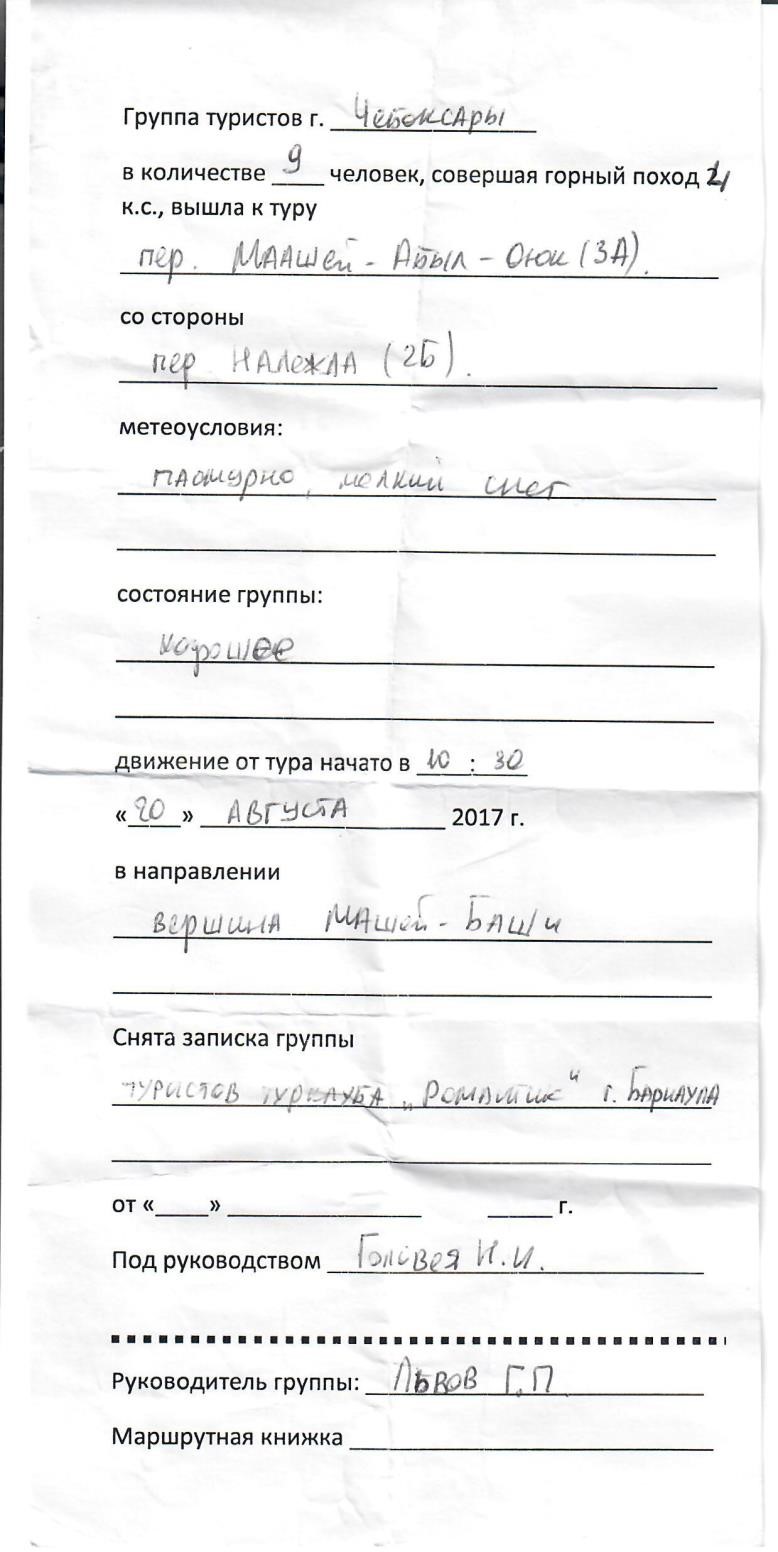 Группа туристов г. Чебоксары
в количестве 9 человек, совершая горный поход
к.с., вышла к туру
пер. Маашей - Абыл - Оюк (3А).
со стороны
пер Надежда (2Б).
метеоусловия:
пасмурно, мелкий снег
состояние группы:
хорошее
движение от тура начато в 10 : 30
«20» августа 2017 г.
в направлении
вершина Машей - Баши
Снята записка группы
туристов турклуба „Романтик“ г. Барнаула
от «____» ________________ _____ г.
Под руководством Головея И.И.
Руководитель группы: Львов Г.П.
Маршрутная книжка